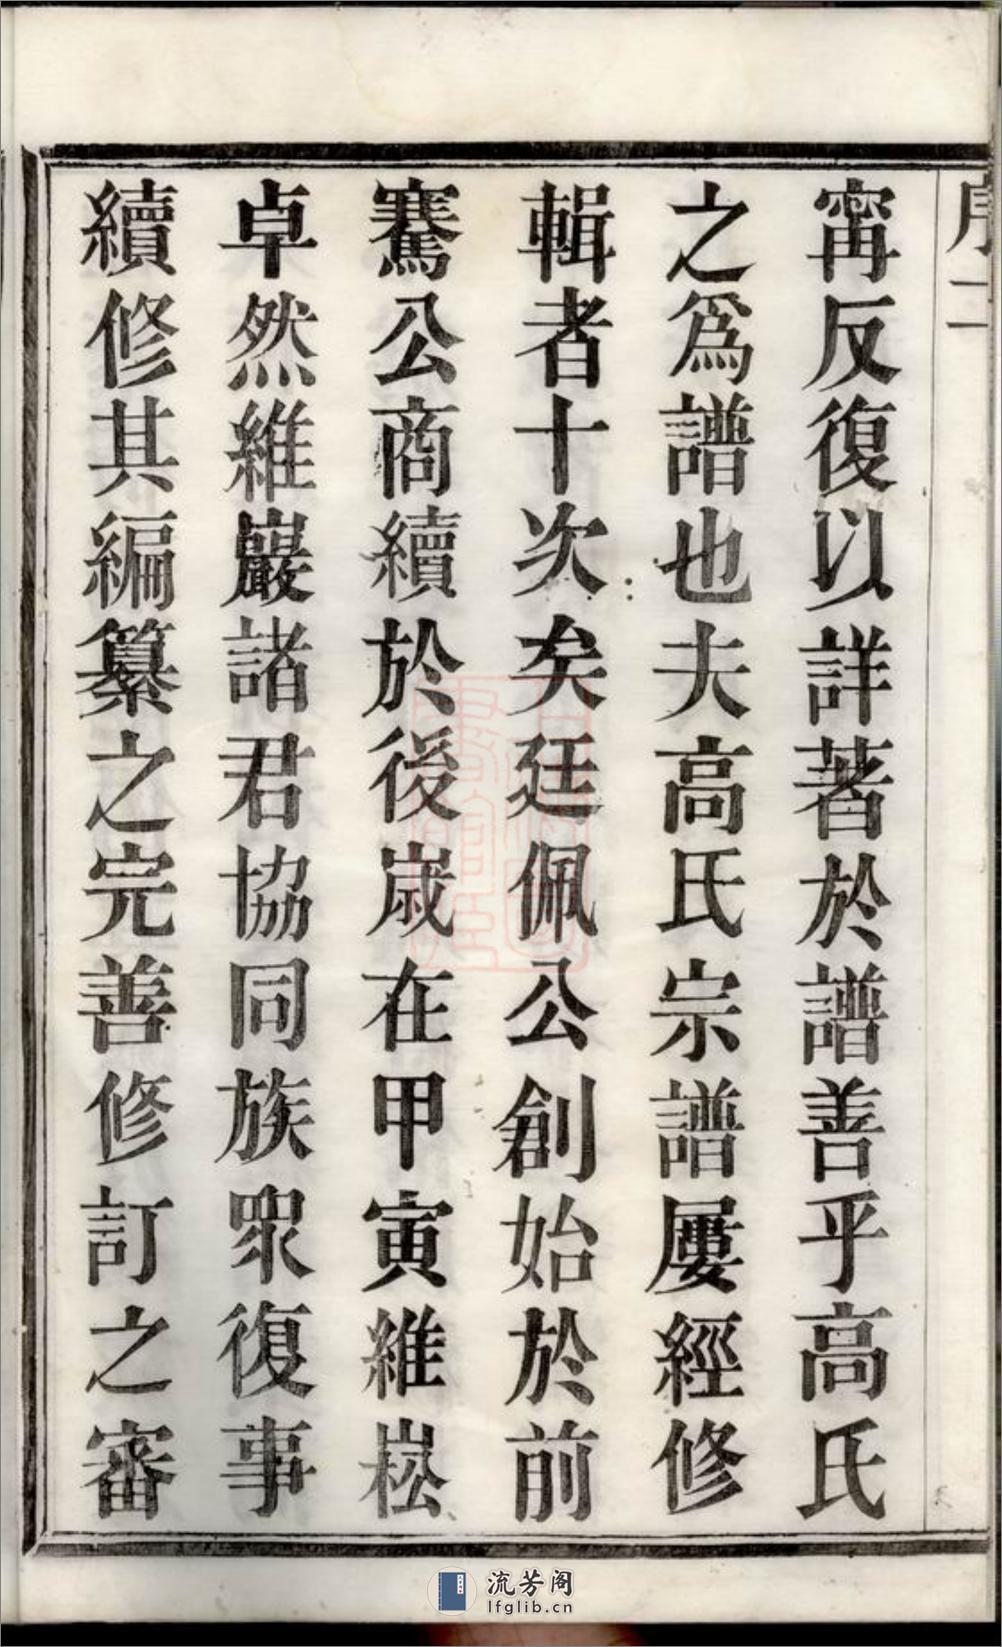 序二
甯反復以詳著於譜善乎高氏
之爲譜也夫高氏宗譜屢經修
輯者十次矣廷佩公創始於前
騫公商續於後歲在甲寅維崧
卓然維巖諸君協同族眾復事
續修其編纂之完善修訂之審
流芳阁
lfglib.cn